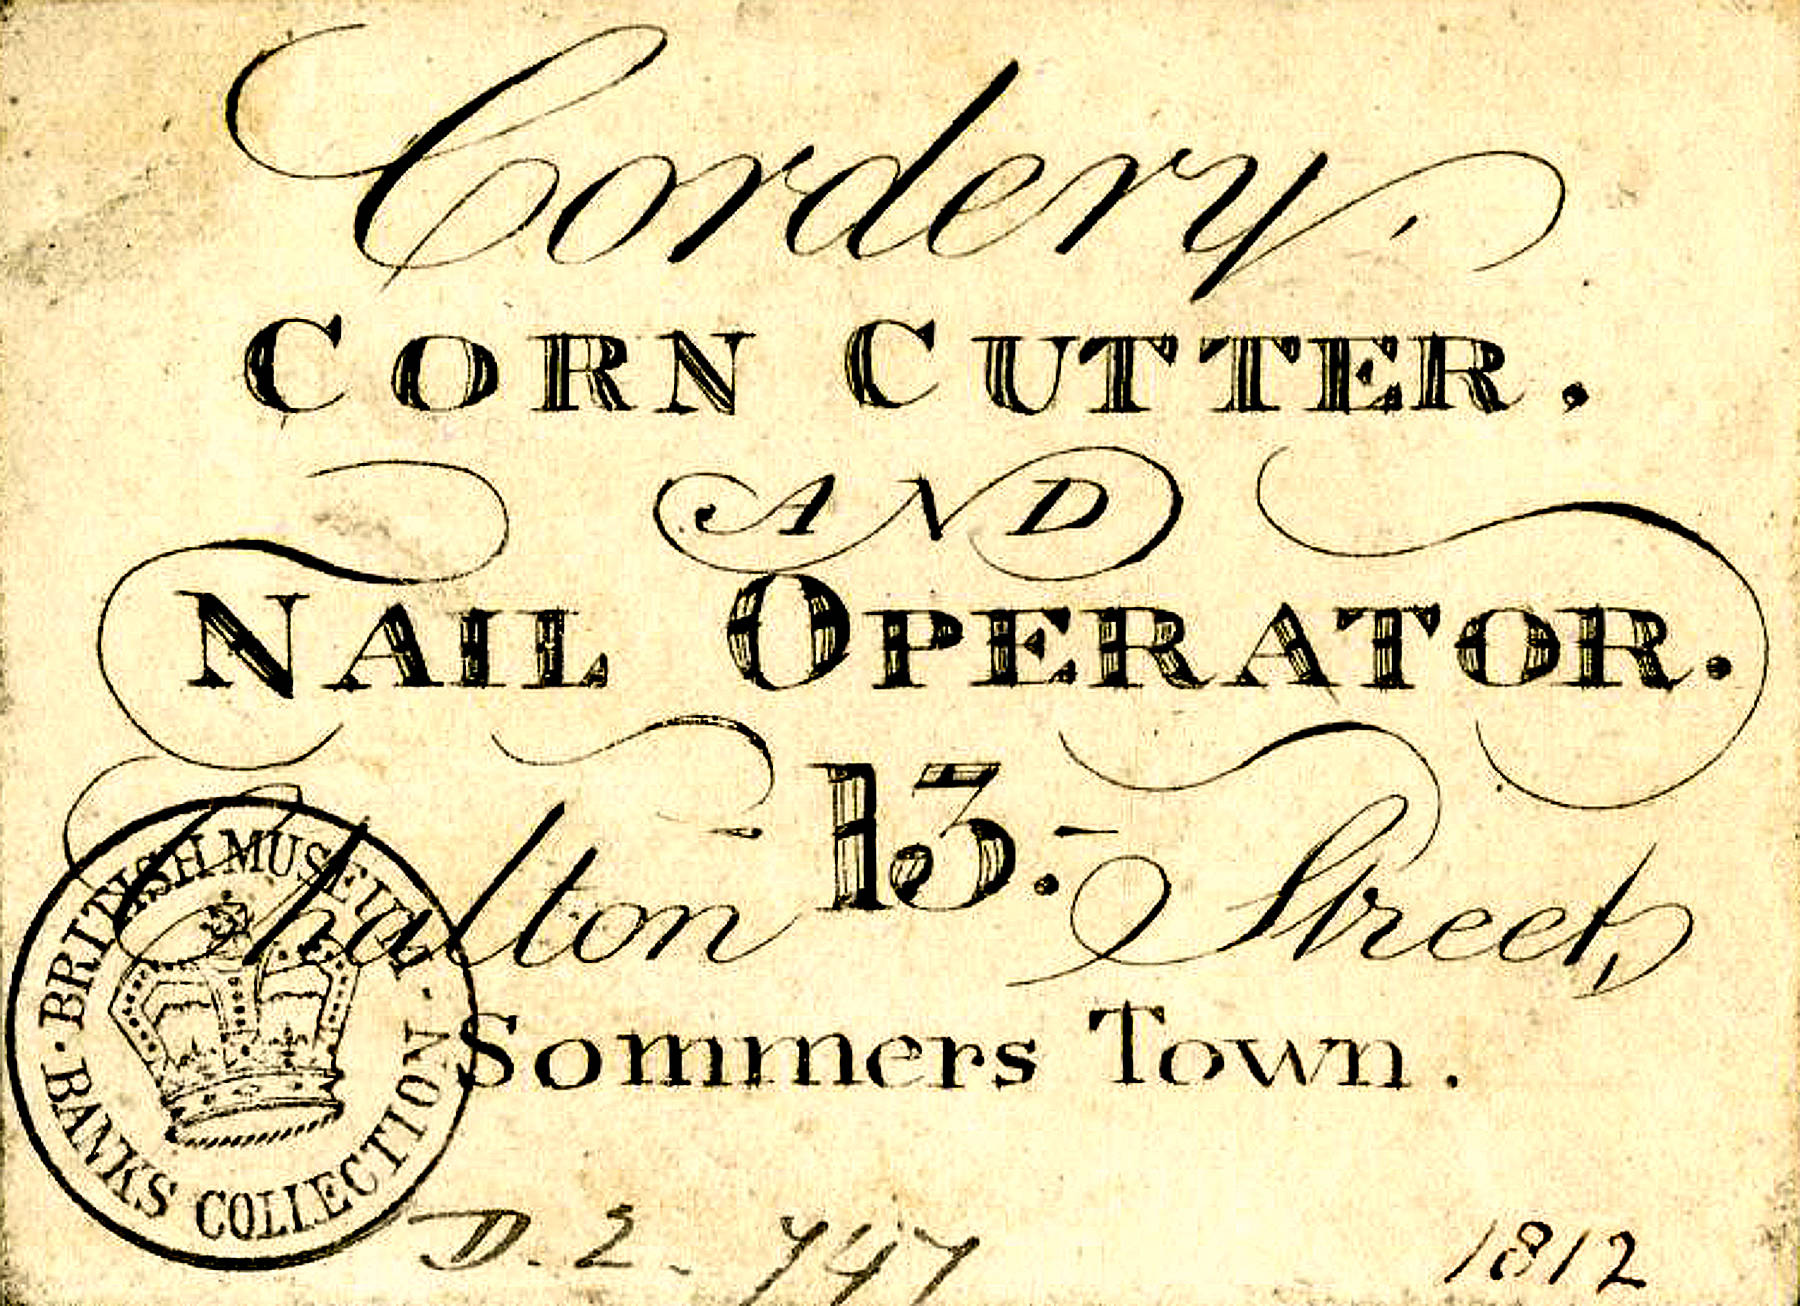 Cordery.
CORN CUTTER.
AND
NAIL OPERATOR.
- 13. -
Chalton Street,
Sommers Town.
· BRITISH MUSEUM ·
BANKS COLLECTION
D. 2. 747
1812